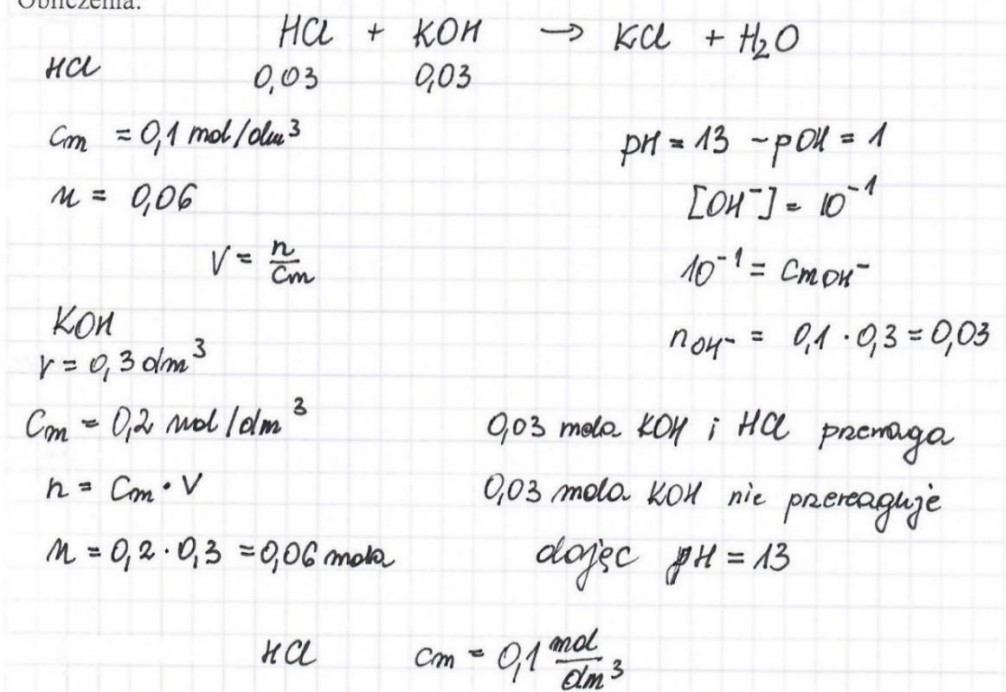 Obliczenia:
HCl + KOH → KCl + H₂O
HCl 0,03 0,03
Cm = 0,1 mol/dm³
n = 0,06
V = n/Cm
KOH
V = 0,3 dm³
Cm = 0,2 mol/dm³
n = Cm · V
n = 0,2 · 0,3 = 0,06 mola
pH = 13 - pOH = 1
[OH⁻] = 10⁻¹
10⁻¹ = Cm OH⁻
nOH⁻ = 0,1 · 0,3 = 0,03
0,03 mola KOH i HCl przereaga
0,03 mola KOH nie przereaguje
dając pH = 13
HCl cm = 0,1 mol/dm³